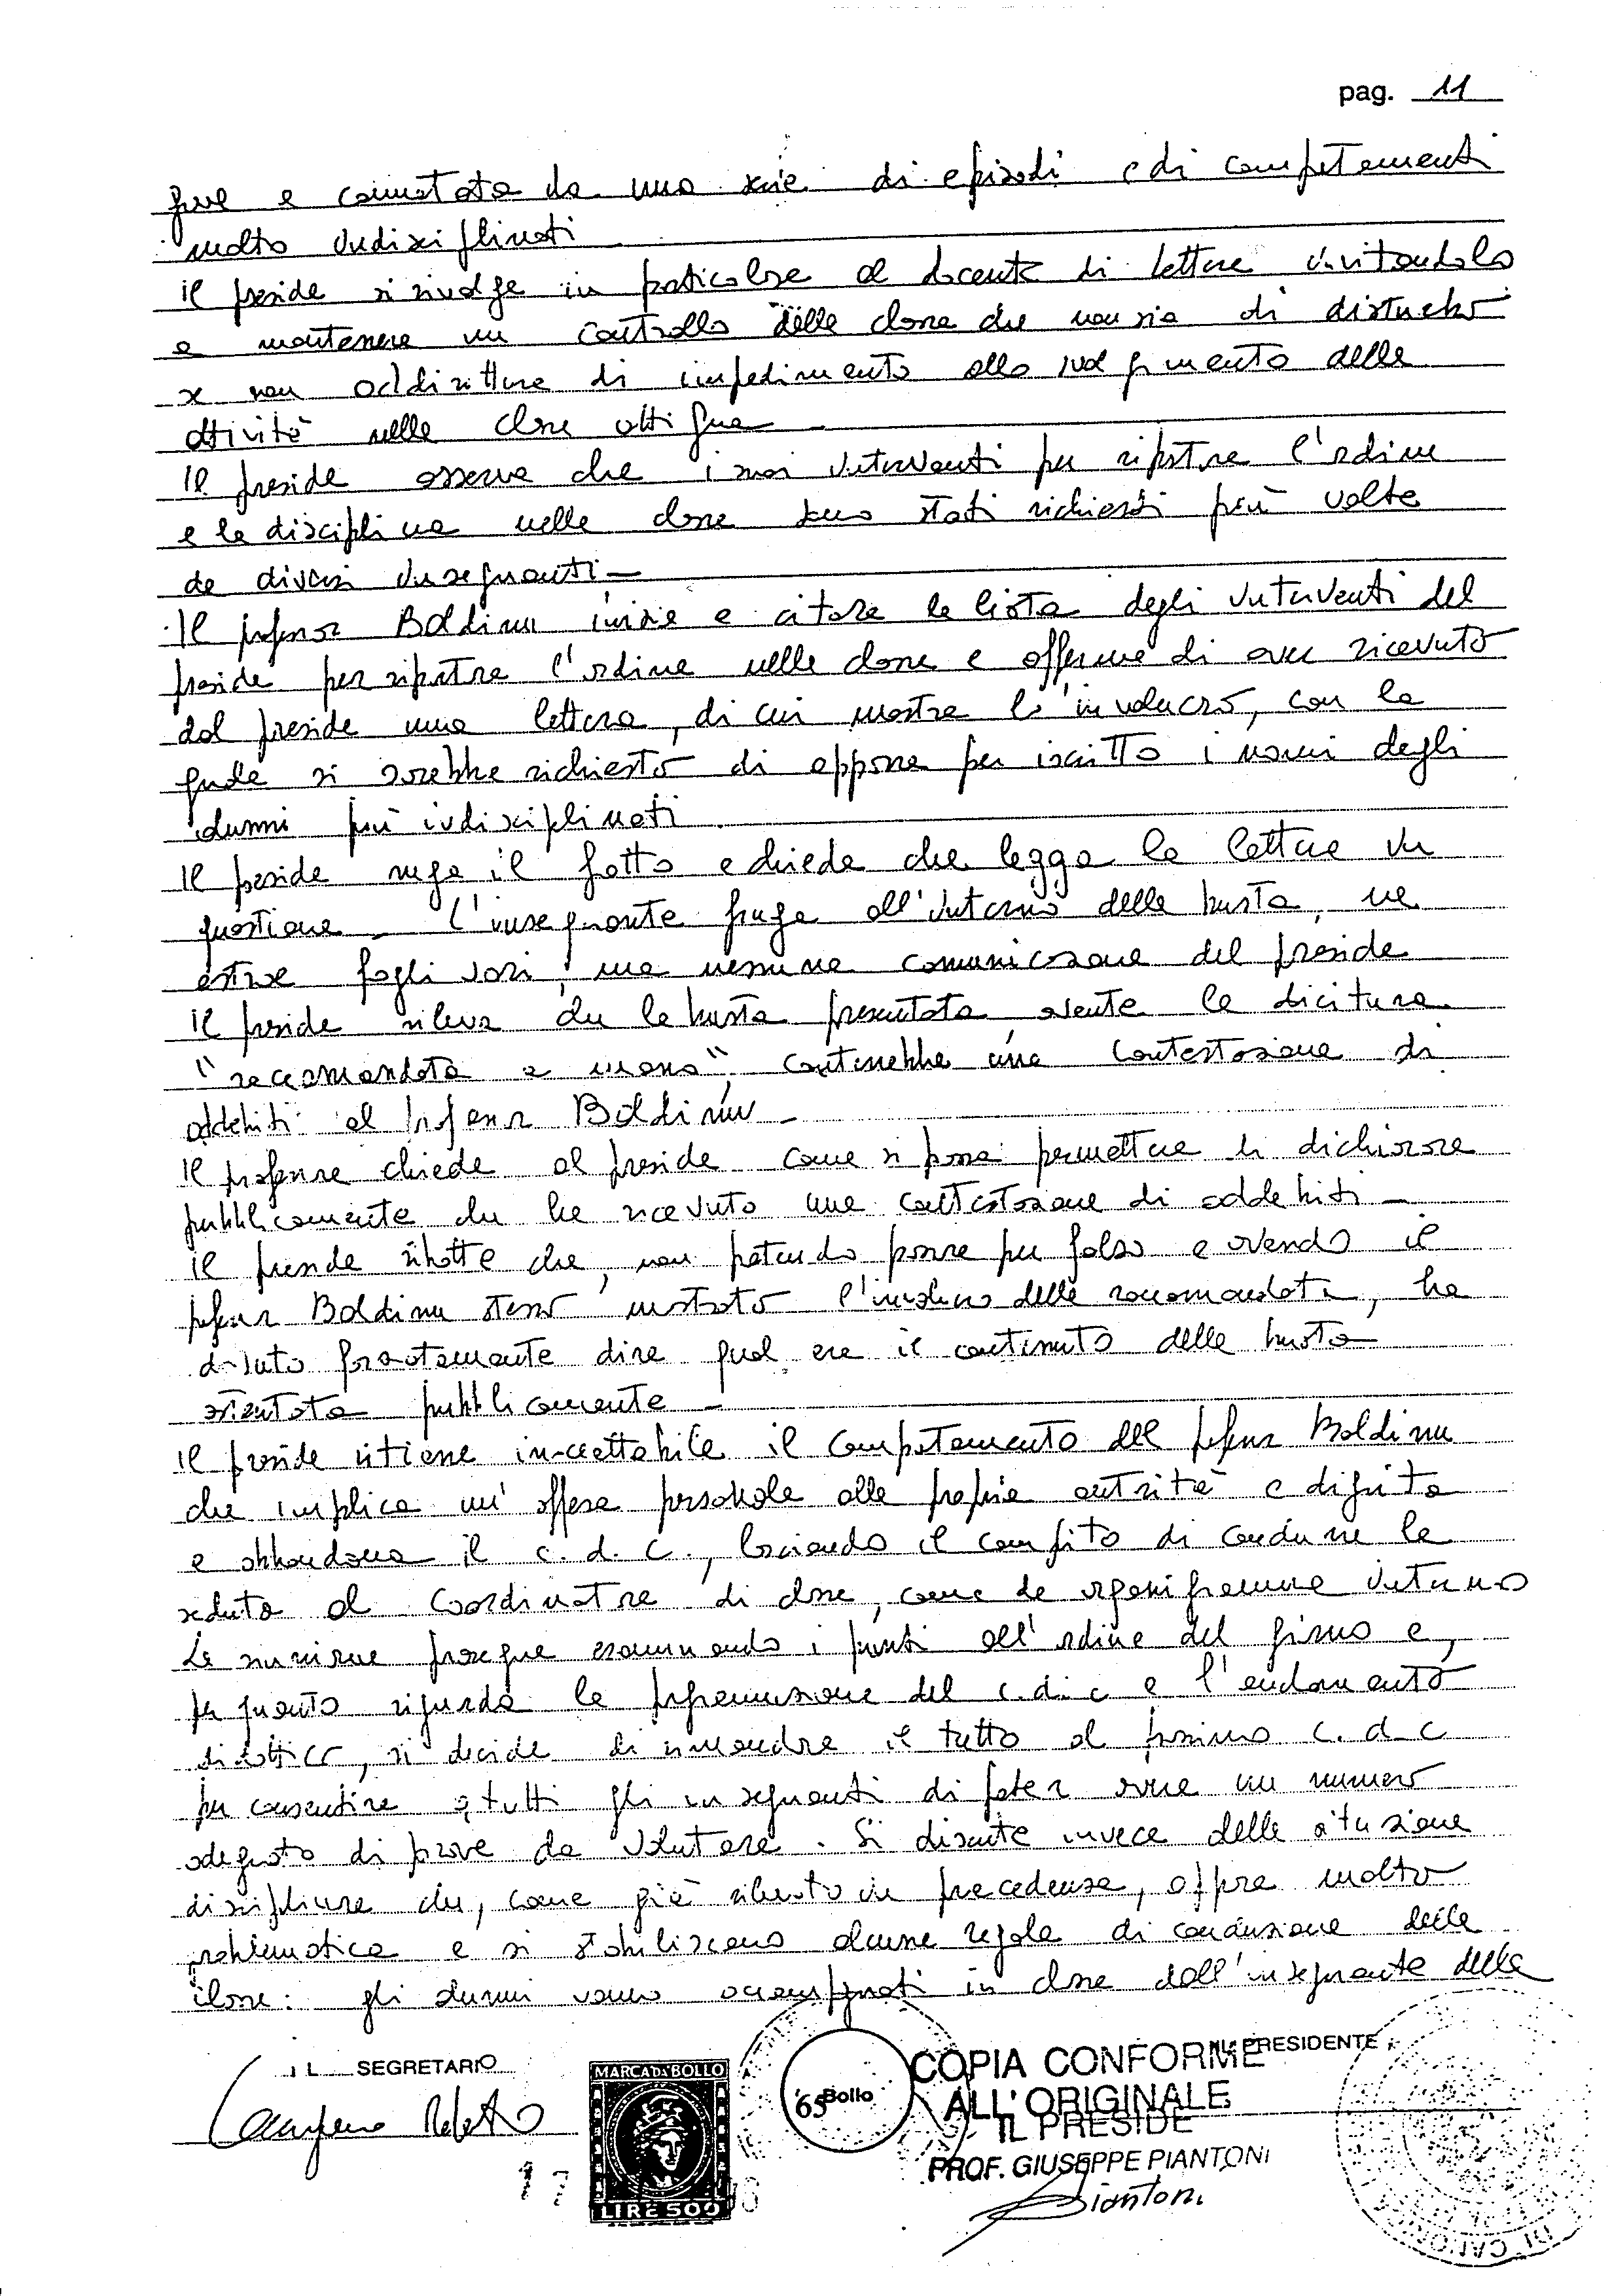 pag. 11
gue e connotata da una serie di episodi e di comportamenti
molto indisciplinati
Il preside si rivolge in particolare al docente di lettere invitandolo
a mantenere un controllo della classe che non sia di disturbo
se non addirittura di impedimento allo svolgimento delle
attività nelle classi attigue
Il preside osserva che i suoi interventi per riportare l'ordine
e la disciplina nella classe sono stati richiesti più volte
da diversi insegnanti -
Il professor Boldini inizia a citare la lista degli interventi del
preside per riportare l'ordine nella classe e afferma di aver ricevuto
dal preside una lettera, di cui mostra l'involucro, con la
quale si sarebbe richiesto di apporre per iscritto i nomi degli
alunni più indisciplinati
Il preside nega il fatto e chiede che legga la lettera in
questione - L'insegnante fruga all'interno della busta, ne
estrae fogli vari, ma nessuna comunicazione del preside
Il preside rileva che la busta presentata, avente la dicitura
"raccomandata a mano", conterrebbe una contestazione di
addebiti al professor Boldini -
Il professore chiede al preside come si possa permettere di dichiarare
pubblicamente che ha ricevuto una contestazione di addebiti -
Il preside ribatte che, non potendo passare per falso e avendo il
professor Boldini stesso mostrato l'involucro della raccomandata, ha
dovuto prontamente dire qual era il contenuto della busta
ostentata pubblicamente -
Il preside ritiene inaccettabile il comportamento del professor Boldini
che implica un'offesa personale alla propria autorità e dignità
e abbandona il c. d. c., lasciando il compito di condurre la
seduta al coordinatore di classe, come da organigramma interno
La riunione prosegue esaminando i punti all'ordine del giorno e,
per quanto riguarda la programmazione del c. d. c e l'andamento
didattico, si decide di rimandare il tutto al prossimo c. d. c
per consentire a tutti gli insegnanti di poter avere un numero
adeguato di prove da valutare. Si discute invece della situazione
disciplinare che, come già rilevato in precedenza, appare molto
problematica e si stabiliscono alcune regole di conduzione della
classe: gli alunni vanno accompagnati in classe dall'insegnante della
IL SEGRETARIO
IL PRESIDENTE
MARCA DA BOLLO
LIRE 500
Bollo
'65
COPIA CONFORME
ALL'ORIGINALE
IL PRESIDE
PROF. GIUSEPPE PIANTONI
Piantoni
17